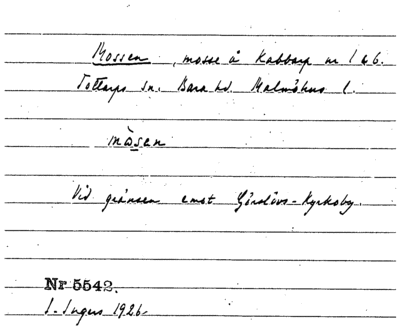 Mossen, mosse å Kabbarp nr 1 & 6.
Tottarps sn. Bara hd. Malmöhus l.
måsen
Vid gränsen emot Görslövs-Kyrkoby.
Nr 5542.
I. Ingers 1926.